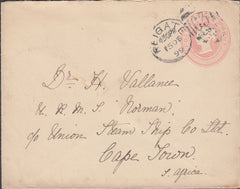 REIGATE
99
Dr. H. Vallance
U. R. M. S. Norman.
c/o Union Steam Ship Co Ltd.
Cape Town.
S. Africa